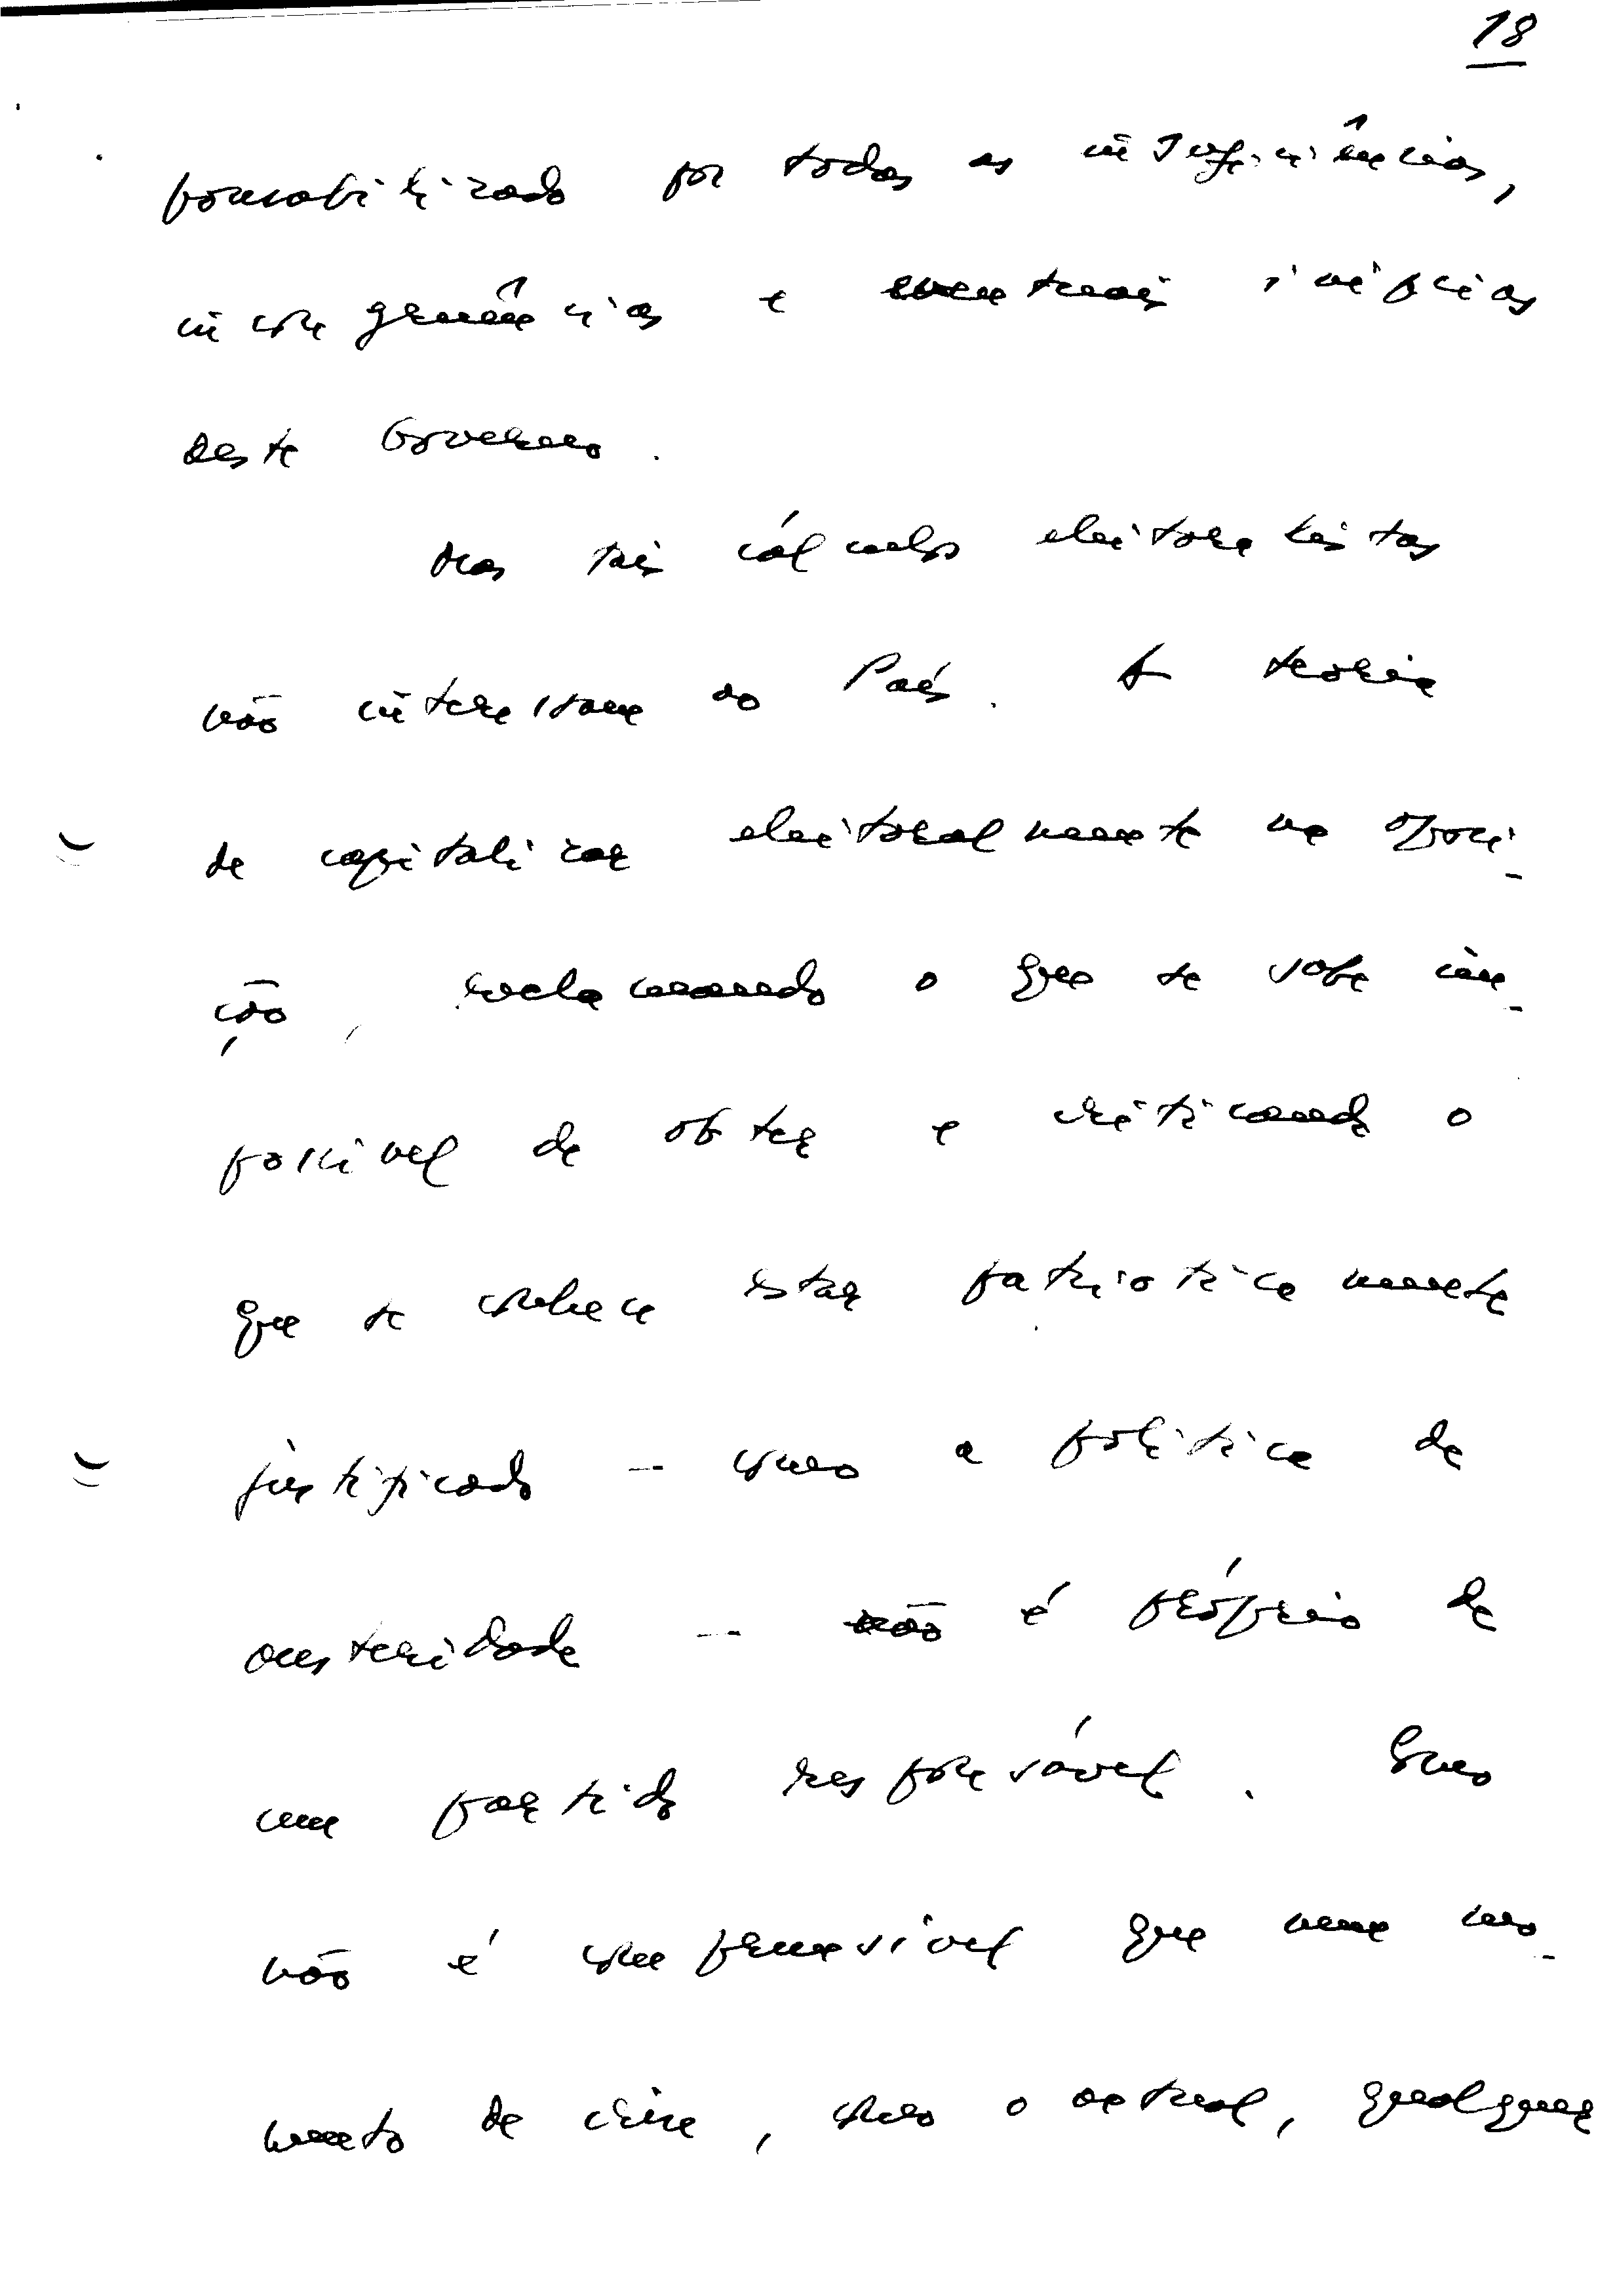 18
ponsabilizado por todas as insuficiências,
incongruências e eventuais inépcias
deste Governo.
Mas tais cálculos eleitoralistas
não interessam ao País. A teoria
de capitalizar eleitoralmente na oposi-
ção, reclamando o que se sabe im-
possível de obter e criticando o
que se conhece estar patrioticamente
justificado — como a política de
austeridade — não é próprio de
um partido responsável. Como
não é compreensível que num mo-
mento de crise, como o actual, qualquer